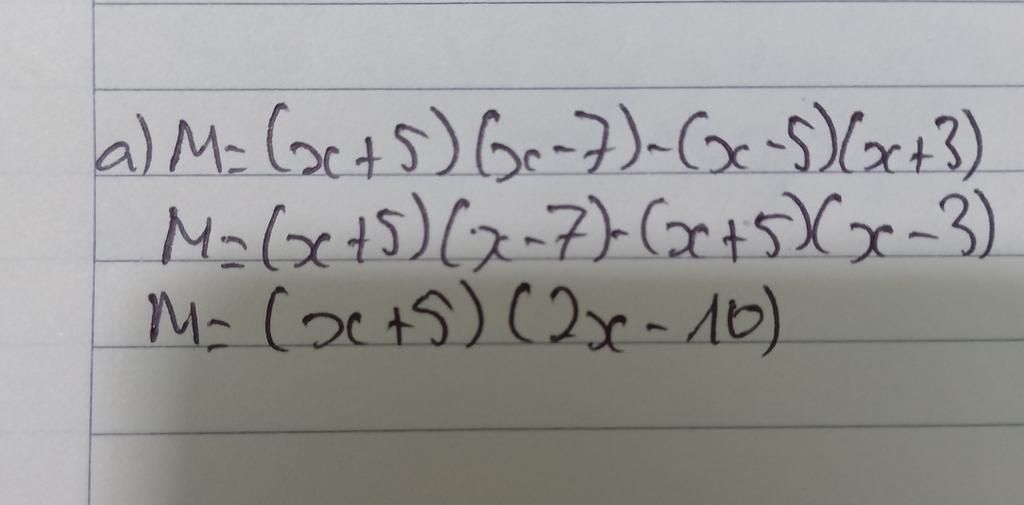 a) M = (x+5)(x-7)-(x-5)(x+3)
M = (x+5)(x-7)-(x+5)(x-3)
M = (x+5)(2x-10)